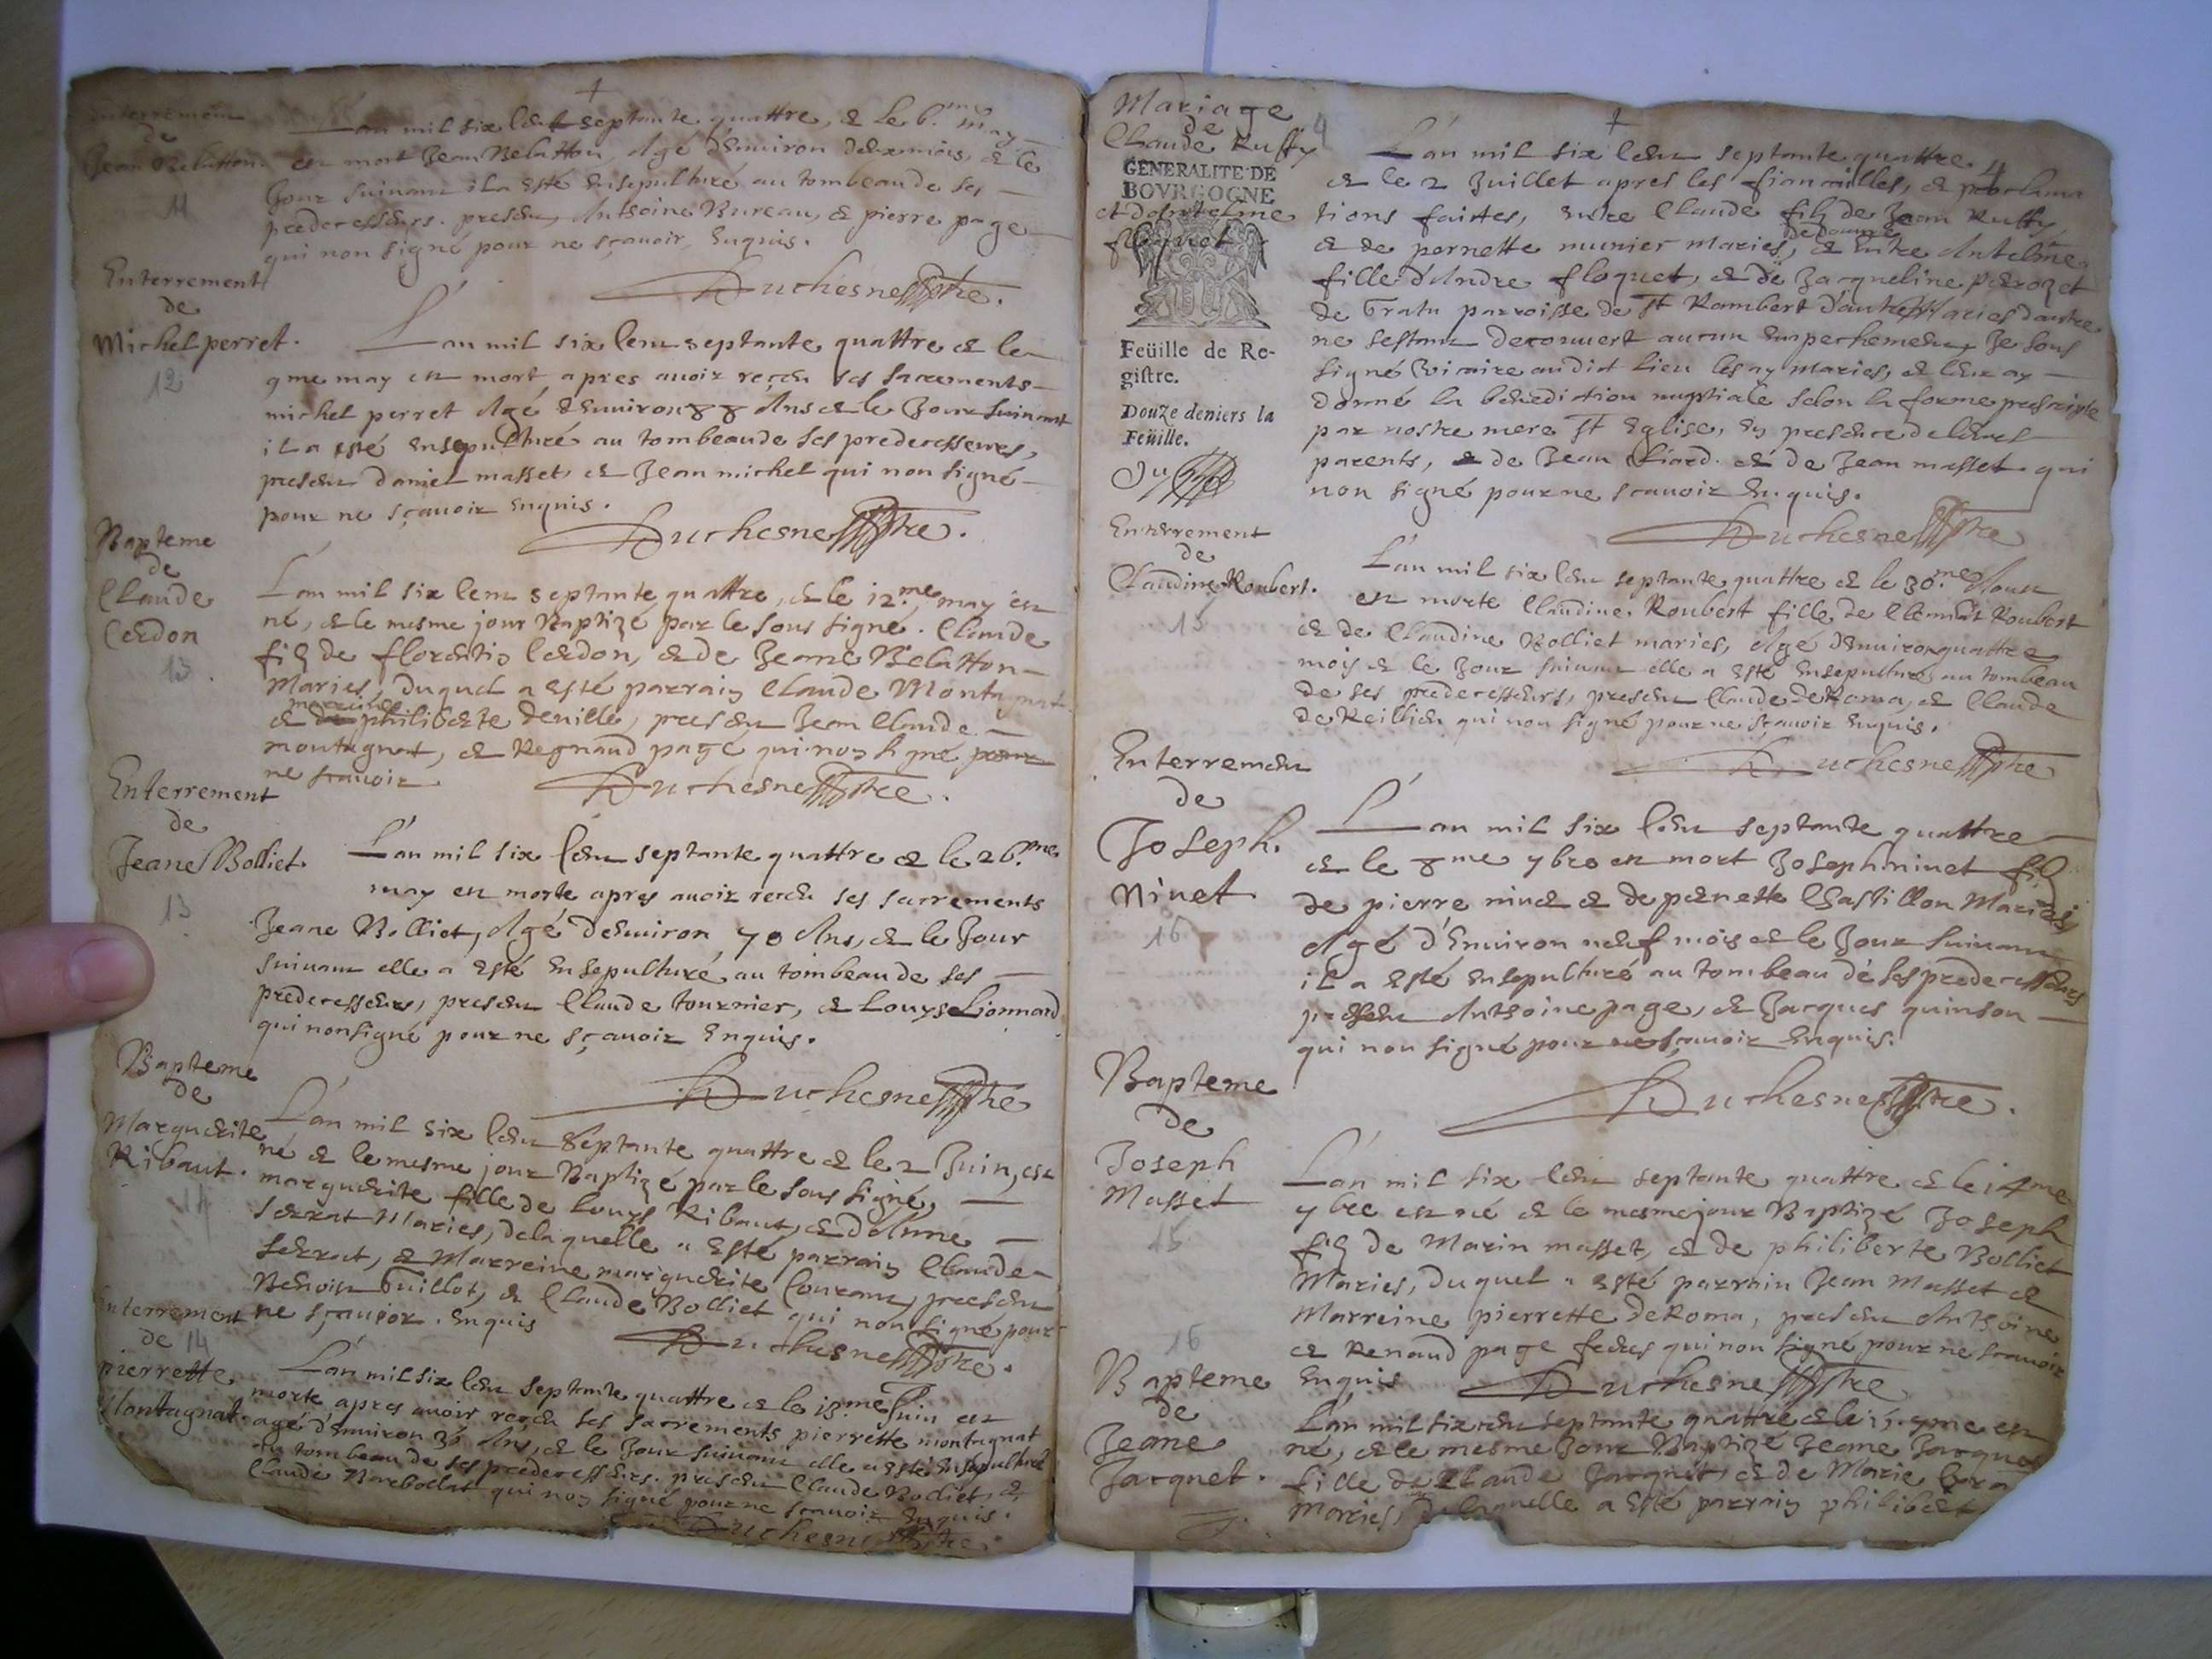 Enterrement
de
Jean Belatton.
11
L'an mil six cent septante quattre, & le 6.me may
est mort Jean Belatton, Agé d'environ deux mois, & le
Jour suivant il a esté ensepulturé au tombeau de ses
predecesseurs. present, Anthoine Bureau, & pierre page
qui non signé pour ne sçavoir, Enquis.
Duchesne ptre.
Enterrement
de
Michel perret.
12
L'an mil six cent septante quattre & le
9me may est mort apres avoir receu ses sacrements
michel perret Agé d'environ 88 Ans & le Jour suivant
il a esté ensepulturé au tombeau de ses predecesseurs,
present daniel masset & Jean michel qui non signé
pour ne sçavoir enquis.
Duchesne ptre.
Bapteme
de
Claude
Cerdon
13
L'an mil six cent septante quattre, & le 12.me may est
né, & le mesme jour Baptizé par le sous signé. Claude
filz de Cerdon, & de Jeane Belatton
Maries, duquel a esté parrain Claude Montagnat
& marreine philiberte deville, present Jean Claude
montagnat, & Regnaud page qui non signé pour
ne scavoir.
Duchesne ptre.
Enterrement
de
Jeane Bolliet
13
L'an mil six cent septante quattre & le 26.me
may est morte apres avoir receu ses sacrements
Jeane Bolliet, Agé d'environ 70 Ans, & le Jour
suivant elle a esté ensepulturé au tombeau de ses
predecesseurs, present Claude tournier, & Louys Lionnard
qui non signé pour ne sçavoir Enquis.
Duchesne ptre
Bapteme
de
Marguerite
Ribaut.
14
L'an mil six cent septante quattre & le 2 Juin, est
né & le mesme jour Baptizé par le sous signé,
marguerite fille de Louys Ribaut, & d'Anne
serrat Maries, de laquelle a esté parrain Claude
serrat, & Marreine marguerite Courant, present
Benoist Guillot, & Claude Bolliet qui non signé pour
ne sçavoir. Enquis
Duchesne ptre.
Enterrement
de 14
pierrette
Montagnat
L'an mil six cent septante quattre & le 18.me Juin est
morte apres avoir receu ses sacrements pierrette montagnat
agé d'environ Ans, & le Jour suivant elle a esté ensepulturé
au tombeau de ses predecesseurs. present Claude Bolliet, &
Claude qui non signé pour ne scavoir Enquis.
Duchesne ptre.
Mariage
de
Claude Ruffy
4
GENERALITE DE
BOVRGOGNE
et d'Antelme
floquet
Feüille de Re-
gistre.
Douze deniers la
Feüille.
L'an mil six cent septante quattre
& le 2 Juillet apres les fiancailles, & proclama
tions faittes, entre Claude filz de Jean Ruffy
& de pernette munier maries, & entre Antelme
fille d'Andre floquet, & de Jacqueline perrozet
de paroisse de St Rambert d'autre Maries d'autre
ne s'estant decouvert aucun empechement Je sous
signé vicaire audict lieu les ay maries, & leur ay
donné la benediction nuptiale selon la forme prescripte
par nostre mere St Eglise, en presence de leurs
parents, & de Jean & de Jean masset qui
non signé pour ne scavoir Enquis.
Duchesne ptre
Enterrement
de
Claudine Roubert.
15
L'an mil six cent septante quattre & le 30.me Aoust
est morte Claudine Roubert fille de Clement Roubert
& de Claudine Bolliet maries, Agé d'environ quattre
mois & le Jour suivant elle a esté ensepulturé au tombeau
de ses predecesseurs, present Claude de Roma, & Claude
qui non signé pour ne sçavoir enquis.
Duchesne ptre
Enterrement
de
Joseph.
Ninet
16
L'an mil six cent septante quattre
& le 8me 7bre est mort Joseph ninet filz
de pierre ninet & de pernette Chastillon Maries
Agé d'Environ neuf mois & le Jour suivant
il a esté ensepulturé au tombeau de ses predecesseurs
present Anthoine page, & Jacques quinson
qui non signé pour ne sçavoir Enquis.
Duchesne ptre.
Bapteme
de
Joseph
Masset
15
L'an mil six cent septante quattre & le 14me
7bre est né & le mesme jour Baptizé Joseph
filz de Marin masset, & de philiberte Bolliet
Maries, duquel a esté parrain Jean Masset &
Marreine pierrette de Roma, present Anthoine
& Renaud page freres qui non signé pour ne scavoir
Enquis
Duchesne ptre
16
Bapteme
de
Jeane
Jacquet.
L'an mil six cent septante quattre & le est
né, & le mesme Jour Baptizé Jeane Jacquet
fille de Claude Jacquet, & de Marie
Maries, de laquelle a esté parrain philibert